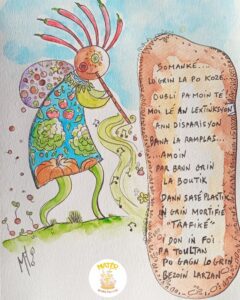 SOMANKE....
LO GRIN LA PO KOZE...
OUBLI PA MOIN TE!
MOI LÉ AN LEXTINKSYON
ANN DISPARISYON
DANA LA RAMPLAS...
AMOIN
PAR BANN GRIN
LA BOUTIK
DANN SASÉ PLASTIK
IN GRIN MORTIFIÉ
"TRAFIKÉ"
I DON IN FOI
PA TOULTAN
PO GAGN LO GRIN
BEZOIN LARZAN
MATÉO